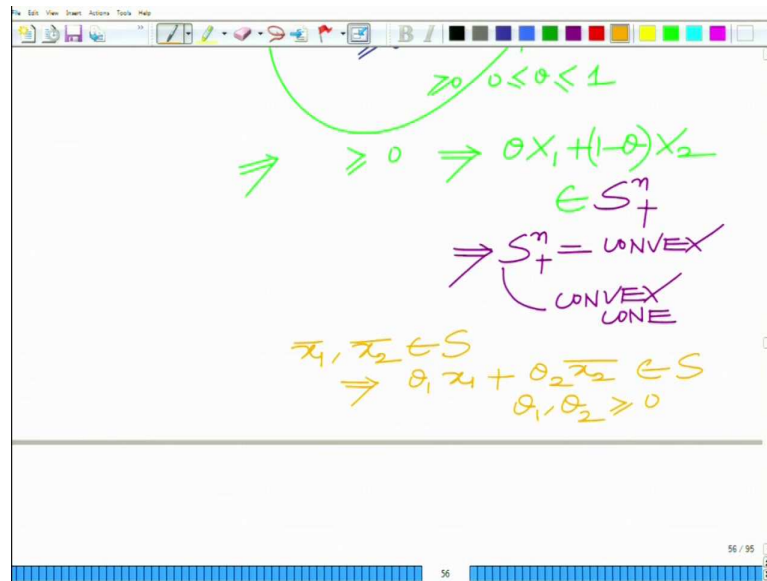 File Edit View Insert Actions Tools Help
B I
≥0 0≤θ≤1
⇒ ≥ 0 ⇒ θX₁+(1-θ)X₂
∈ S₊ⁿ
⇒ S₊ⁿ = CONVEX
CONVEX
CONE
x̄₁, x̄₂ ∈ S
⇒ θ₁ x₁ + θ₂ x̄₂ ∈ S
θ₁, θ₂ ≥ 0
56 / 95
56